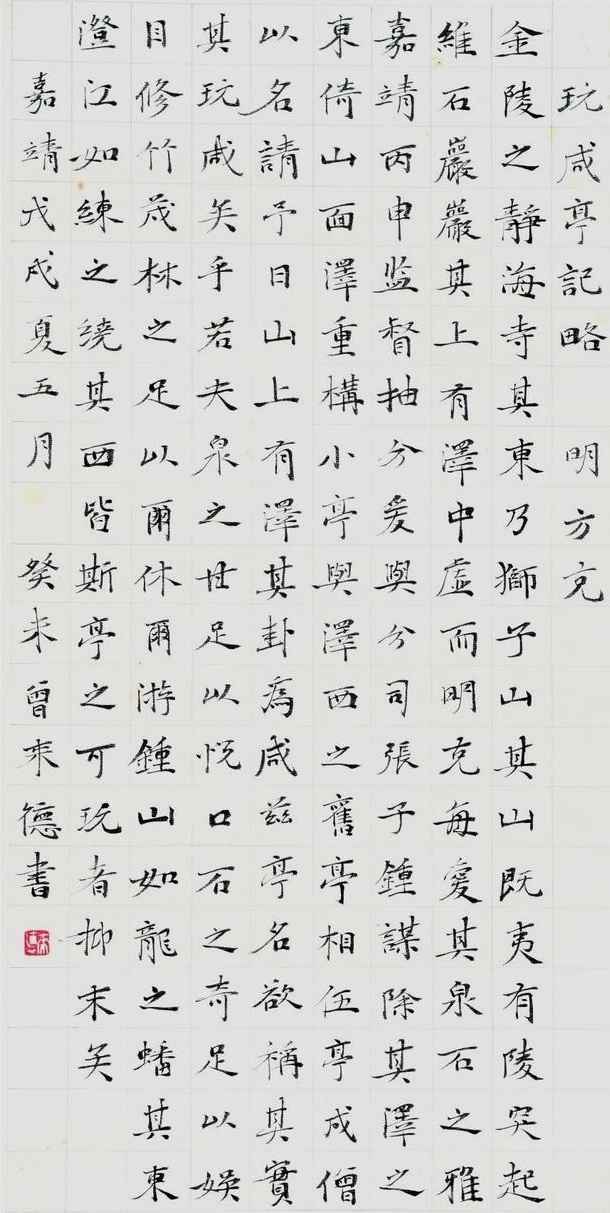 玩咸亭記略 明方克
金陵之靜海寺其東乃獅子山其山既夷有陵突起
維石巖巖其上有澤中虛而明克每愛其泉石之雅
嘉靖丙申监督抽分爰與分司張子鍾謀除其澤之
東倚山面澤重構小亭與澤西之舊亭相伍亭成僧
以名請予曰山上有澤其卦爲咸兹亭名欲稱其實
其玩咸矣乎若夫泉之甘足以悦口石之奇足以娱
目修竹茂林之足以爾休爾游鍾山如龍之蟠其東
澄江如練之繞其西皆斯亭之可玩者抑末矣
嘉靖戊戌夏五月 癸未曾来德書